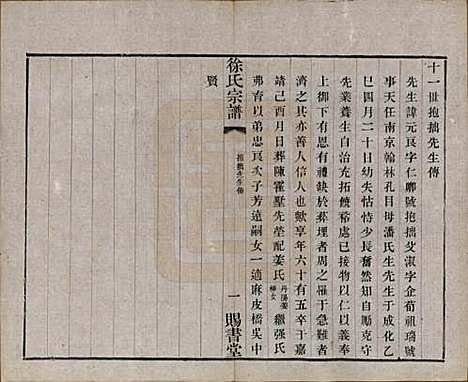 十一世抱拙先生傳
先生諱元良字仁卿號抱拙父淑字企荀祖瑞號
事天任南京翰林孔目母潘氏生先生于成化乙
巳四月二十日幼失怙恃少長奮然知自勵克守
先業養生自治充拓饒裕處已接物以仁以義奉
上御下有恩有禮缺於葬埋者周之罹于急難者
濟之其亦善人信人也歟享年六十有五卒于嘉
靖己酉月日葬陳霍墅先塋配姜氏丹陽姜 女繼強氏
弗育以弟忠良次子芳遠嗣女一適麻皮橋吳中
賢
徐氏宗譜
抱拙先生傳
一
賜書堂